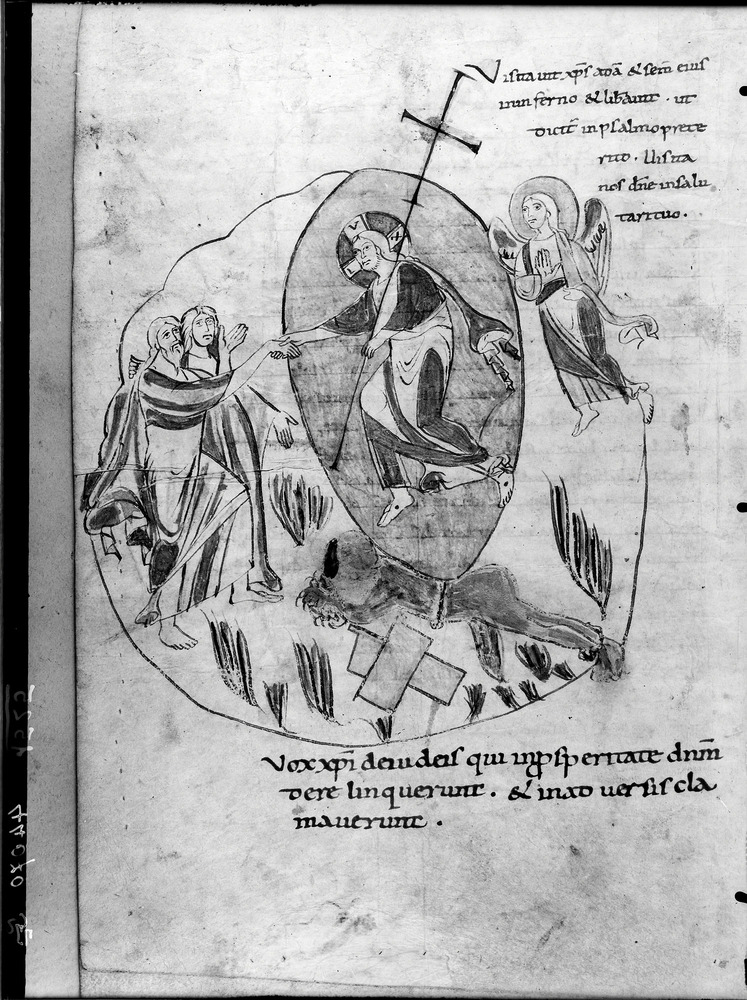 Visitauit xp̄s adā & sem̄ eius
inin ferno & lib̄auit · ut
dicit̄ inpsalmo prete
rito · Uisita
nos dn̄e insalu
tari tuo ·
Vox xp̄i deiudeis qui inp̱speritate dnm̄
dere linquerunt · & inad uersis cla
mauerunt ·
44070